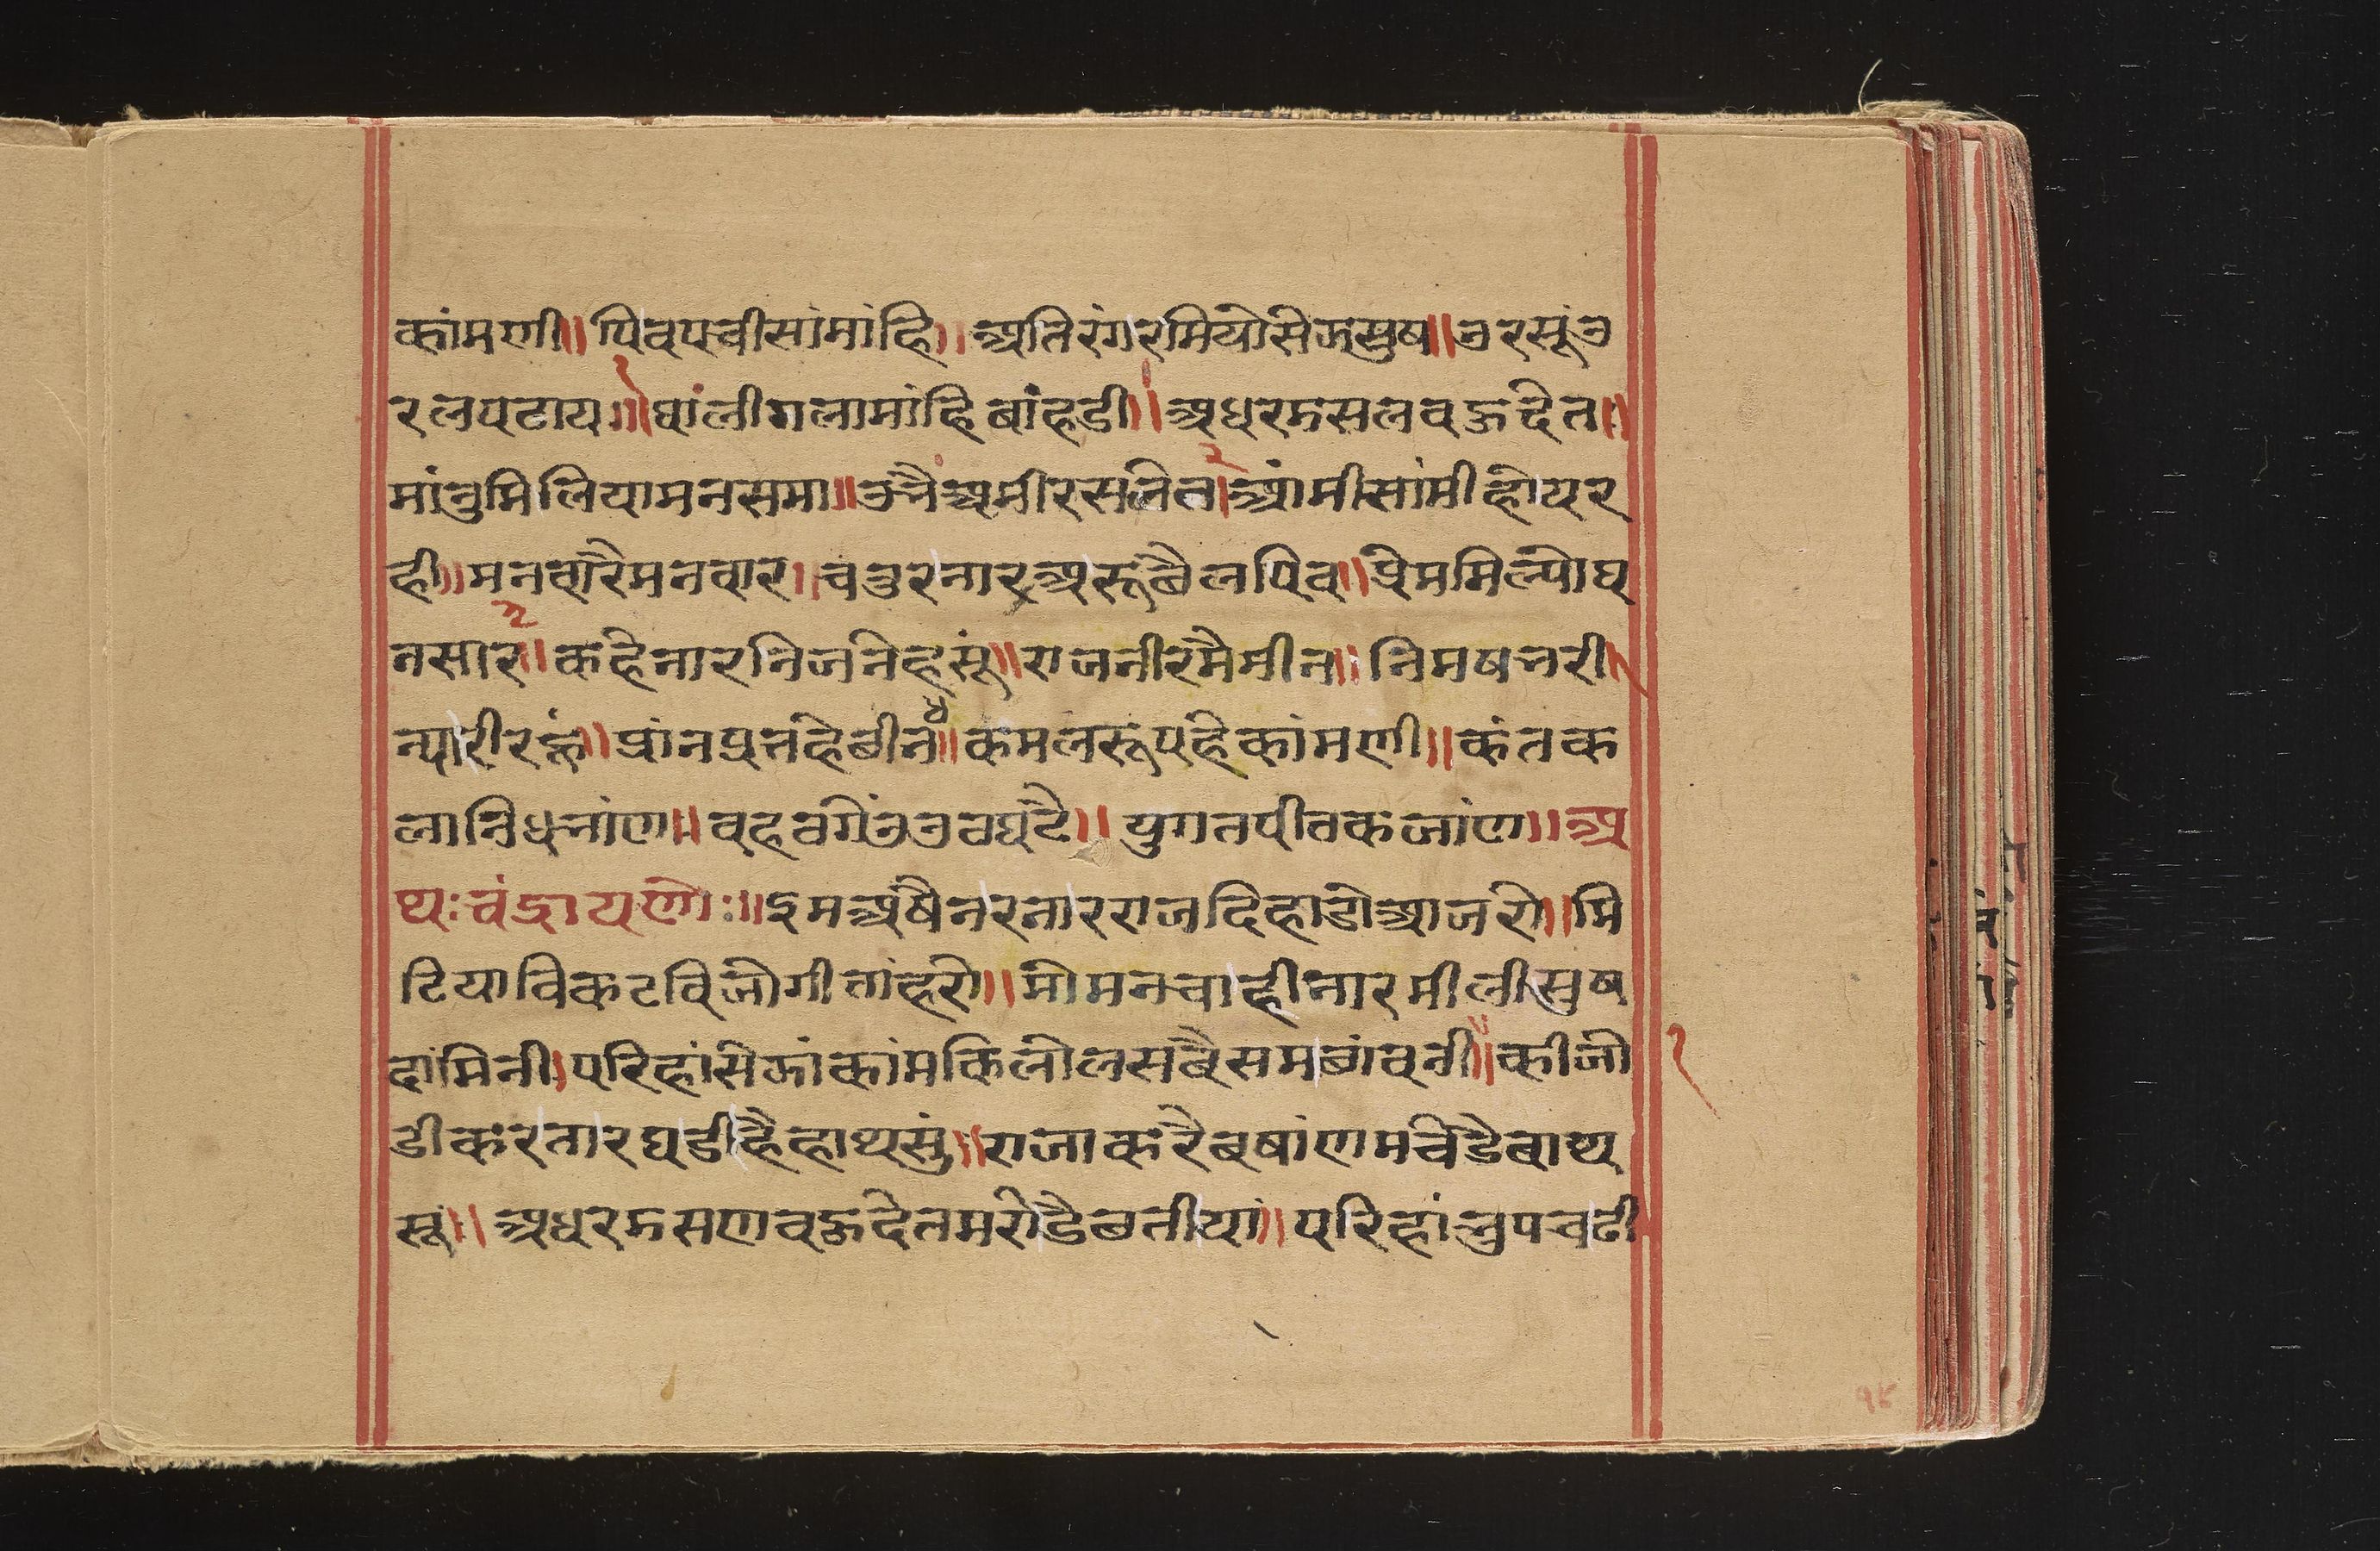 कांमणी॥ पिवपचीसांमांहि॥ अतिरंगरमियोसेजसुष॥ उरसूंउ
रलपटाय॥१ घांलीगलामांहिबांहडी॥ अधरमसलवऊदेत॥
मांनुमिलियामनसमा॥ उनैअमीरसलेत॥२ आंमीसांमीहोयर
ही॥ मनवारैमनवार॥ चतुरनारअरूछैलपिव॥ प्रेममिल्योघ
नसार॥३ कहेनारनिजनेहसूं॥ राजनीरमैमीन॥ निमषनरी॥
न्यारीरऊं॥ प्रांनपुनहेबीन॥४ कमलरूपहेकांमणी॥ कंतक
लानिधनांण॥ वहवगेंउउवघटै॥ युगतपीतकजांण॥ अ
थःचंद्रायणोः॥ इमअंषैनरनारराजदिहाडोआजरो॥ मि
टियाविकटविजोगीतांहरो॥ मोमनचाहीनारमीलीसुष
दांमिनी। परिहांसेजांकांमकिलोलसबैसमबांवनी॥ कीजो
डीकरतारघडीहैहाथसुं॥ राजाकरैबषांणमचेडैबाथ
सूं॥ अधरमसणवऊदेतमरोडैबतीयां॥ परिहांनुपचढी
१
१५